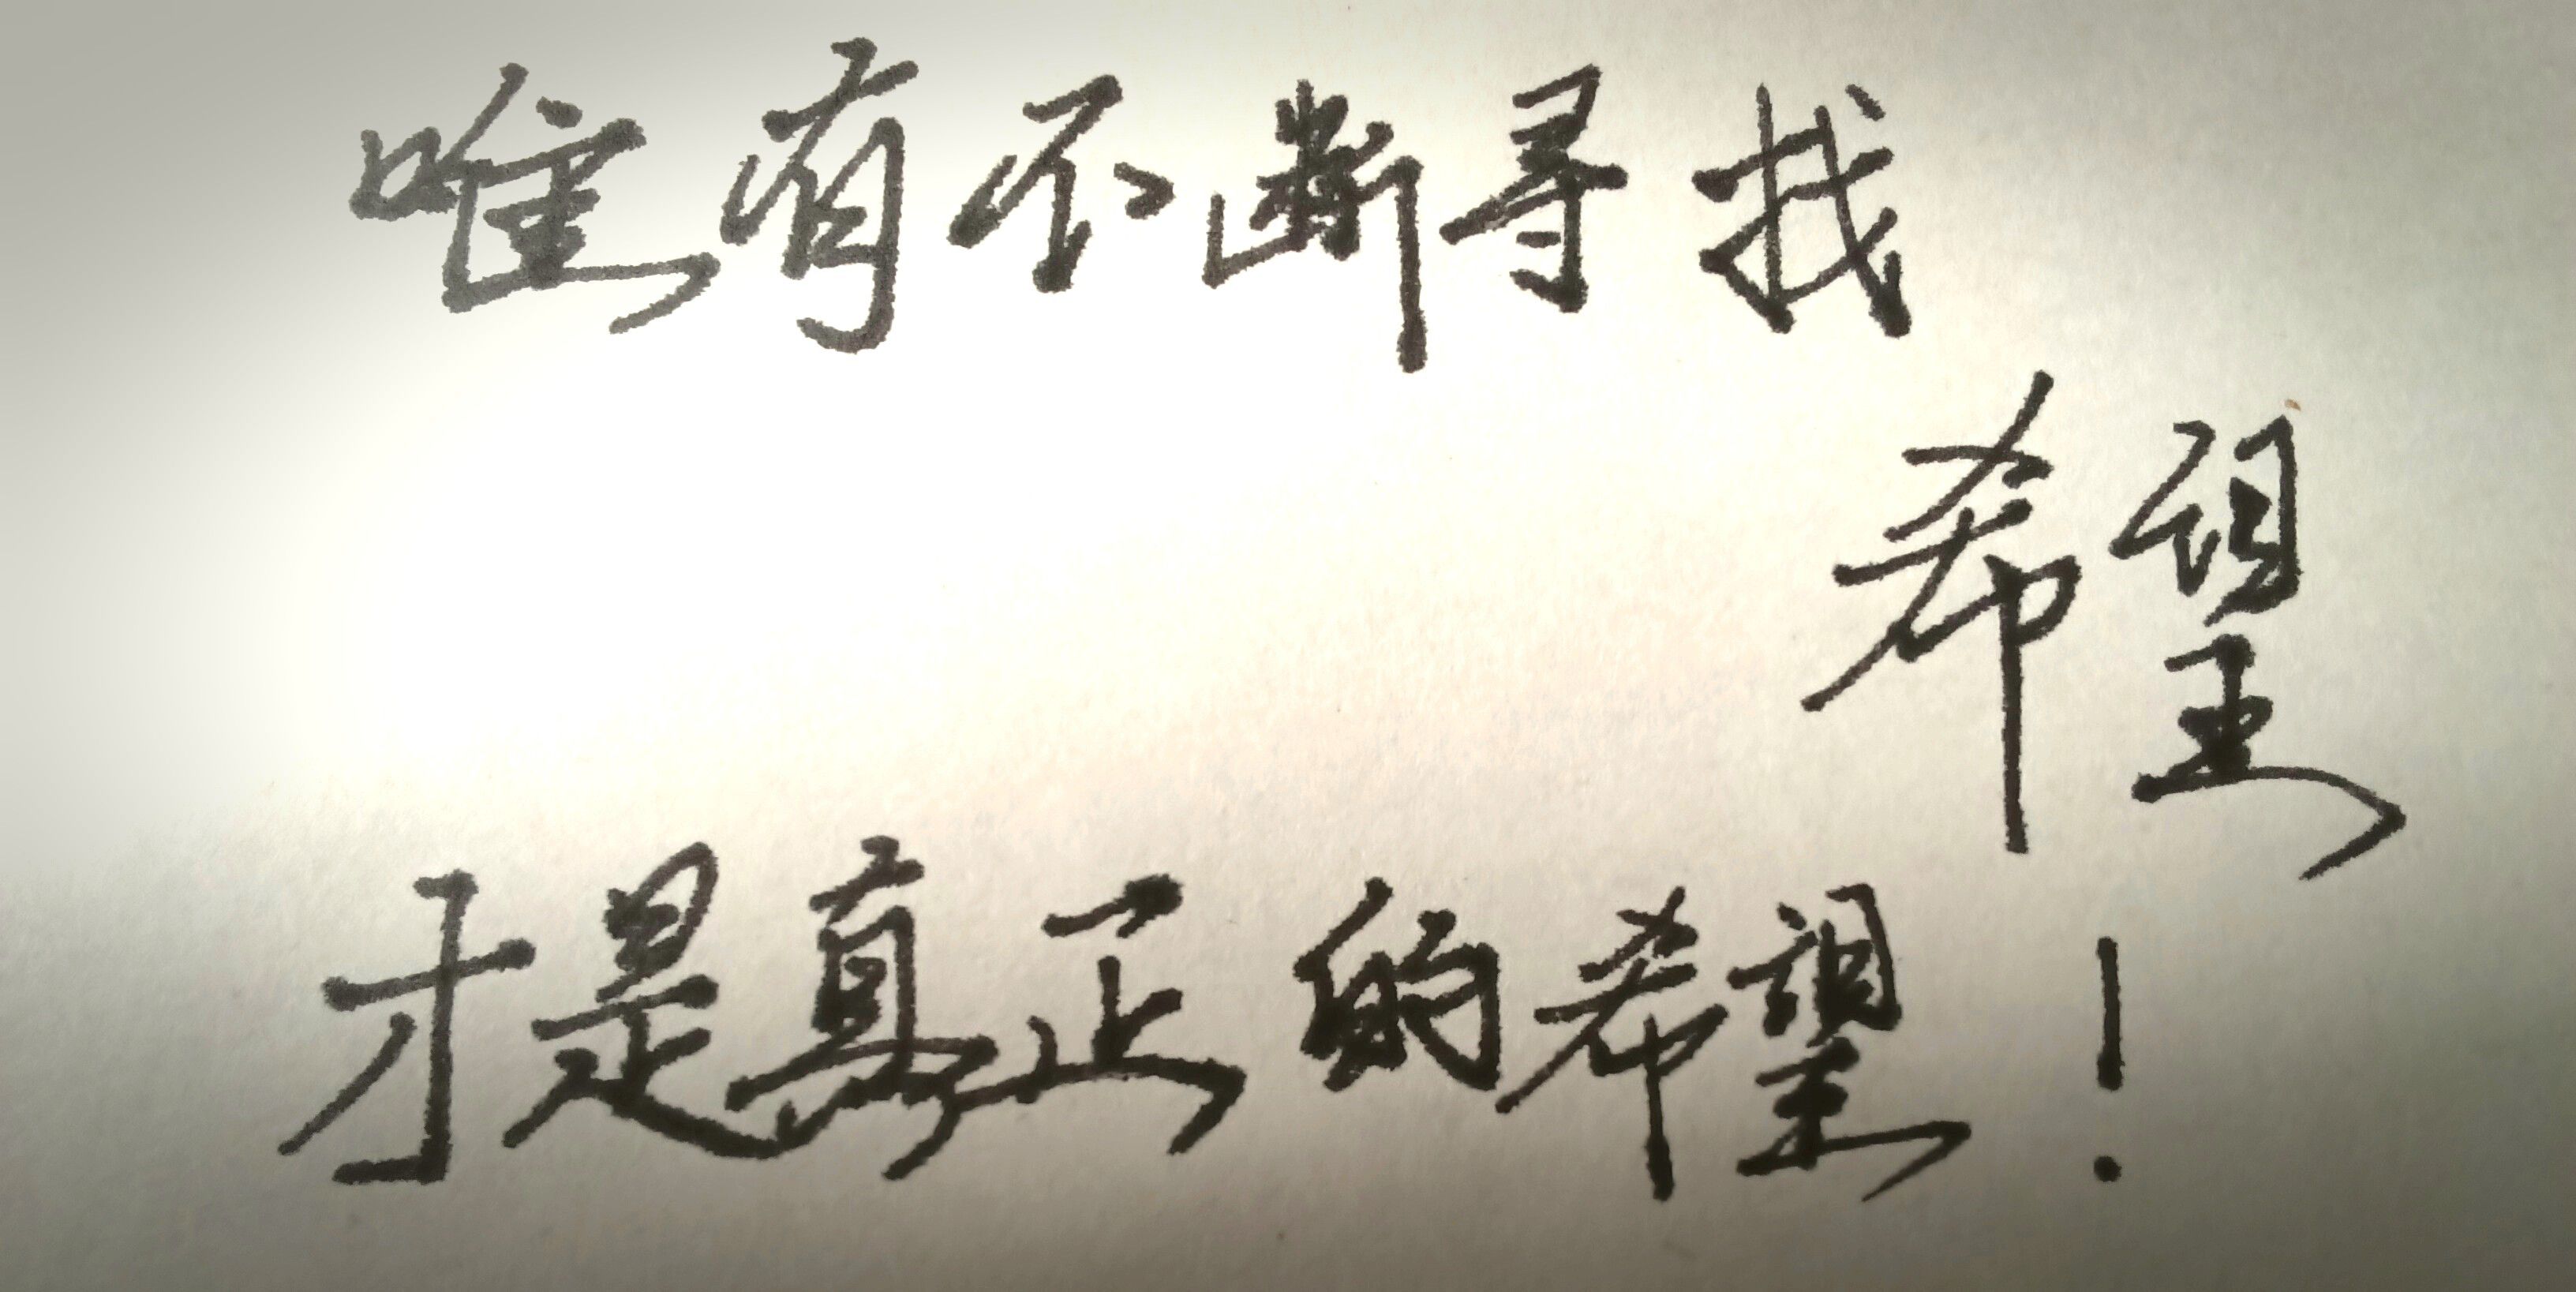 唯有不断寻找
希望
才是真正的希望！